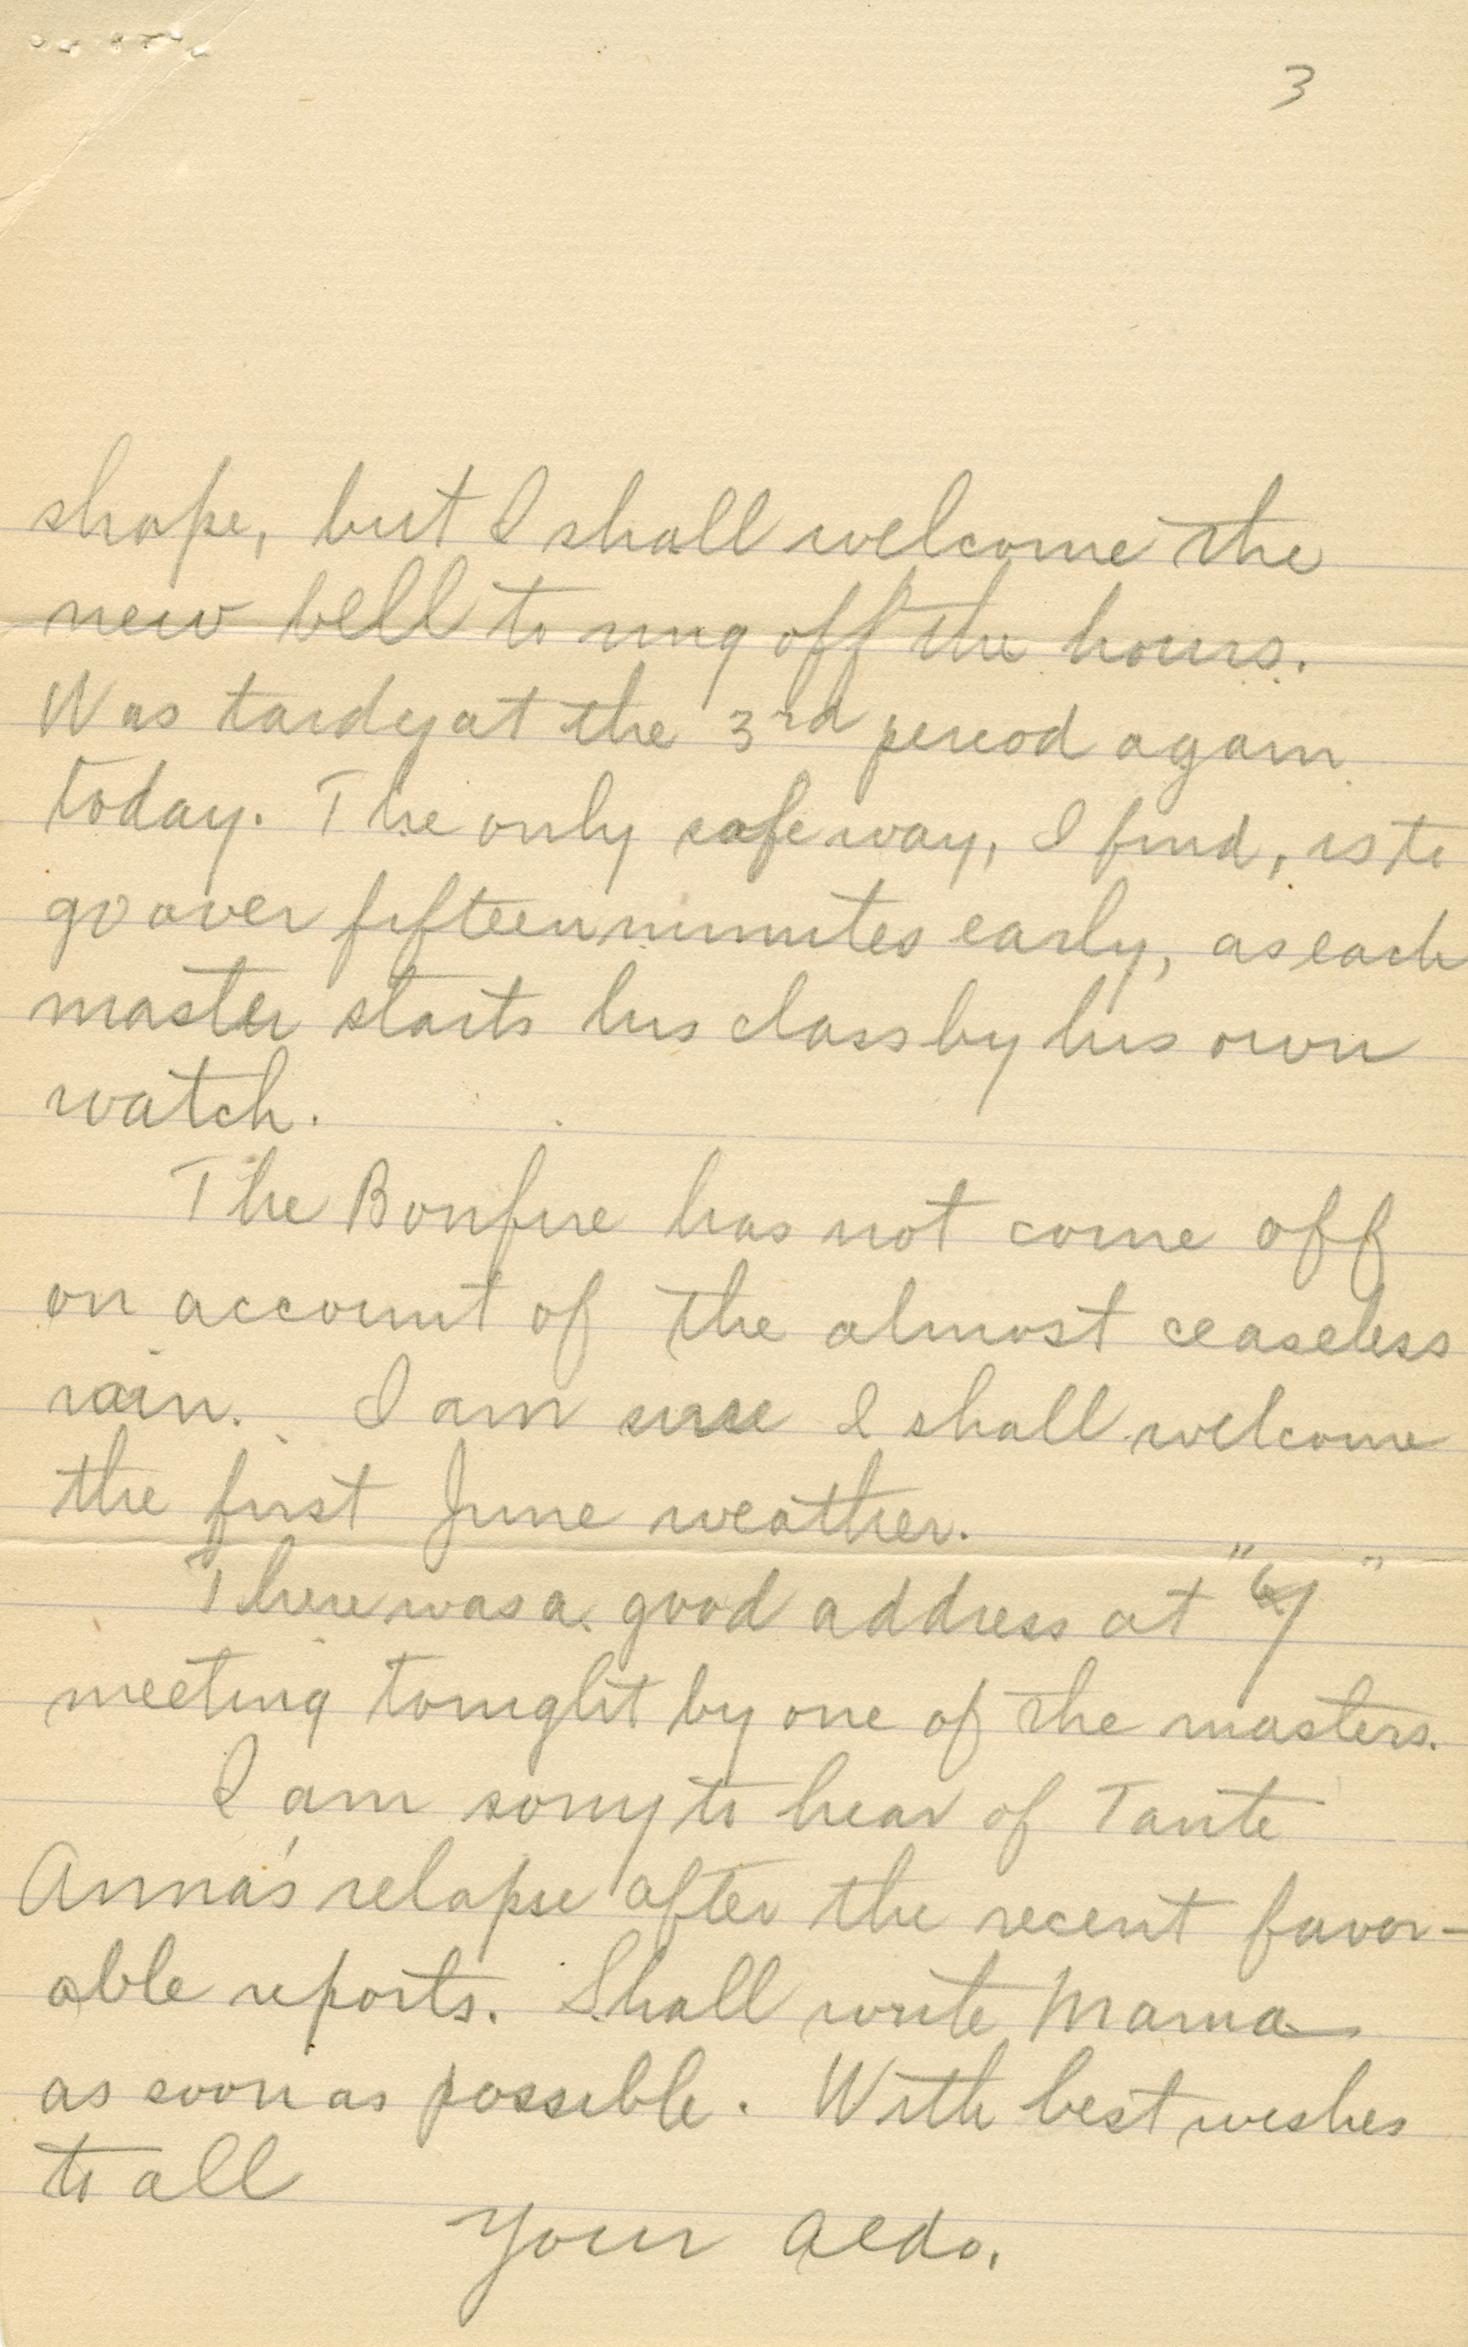 3
shape, but I shall welcome the
new bell to ring off the hours.
Was tardy at the 3rd period again
today. The only safe way, I find, is to
go over fifteen minutes early, as each
master starts his class by his own
watch.
The Bonfire has not come off
on account of the almost ceaseless
rain. I am sure I shall welcome
the first June weather.
There was a good address at "Y"
meeting tonight by one of the masters.
I am sorry to hear of Tante
Anna's relapse after the recent favor-
able reports. Shall write Mama
as soon as possible. With best wishes
to all
Your Aldo.